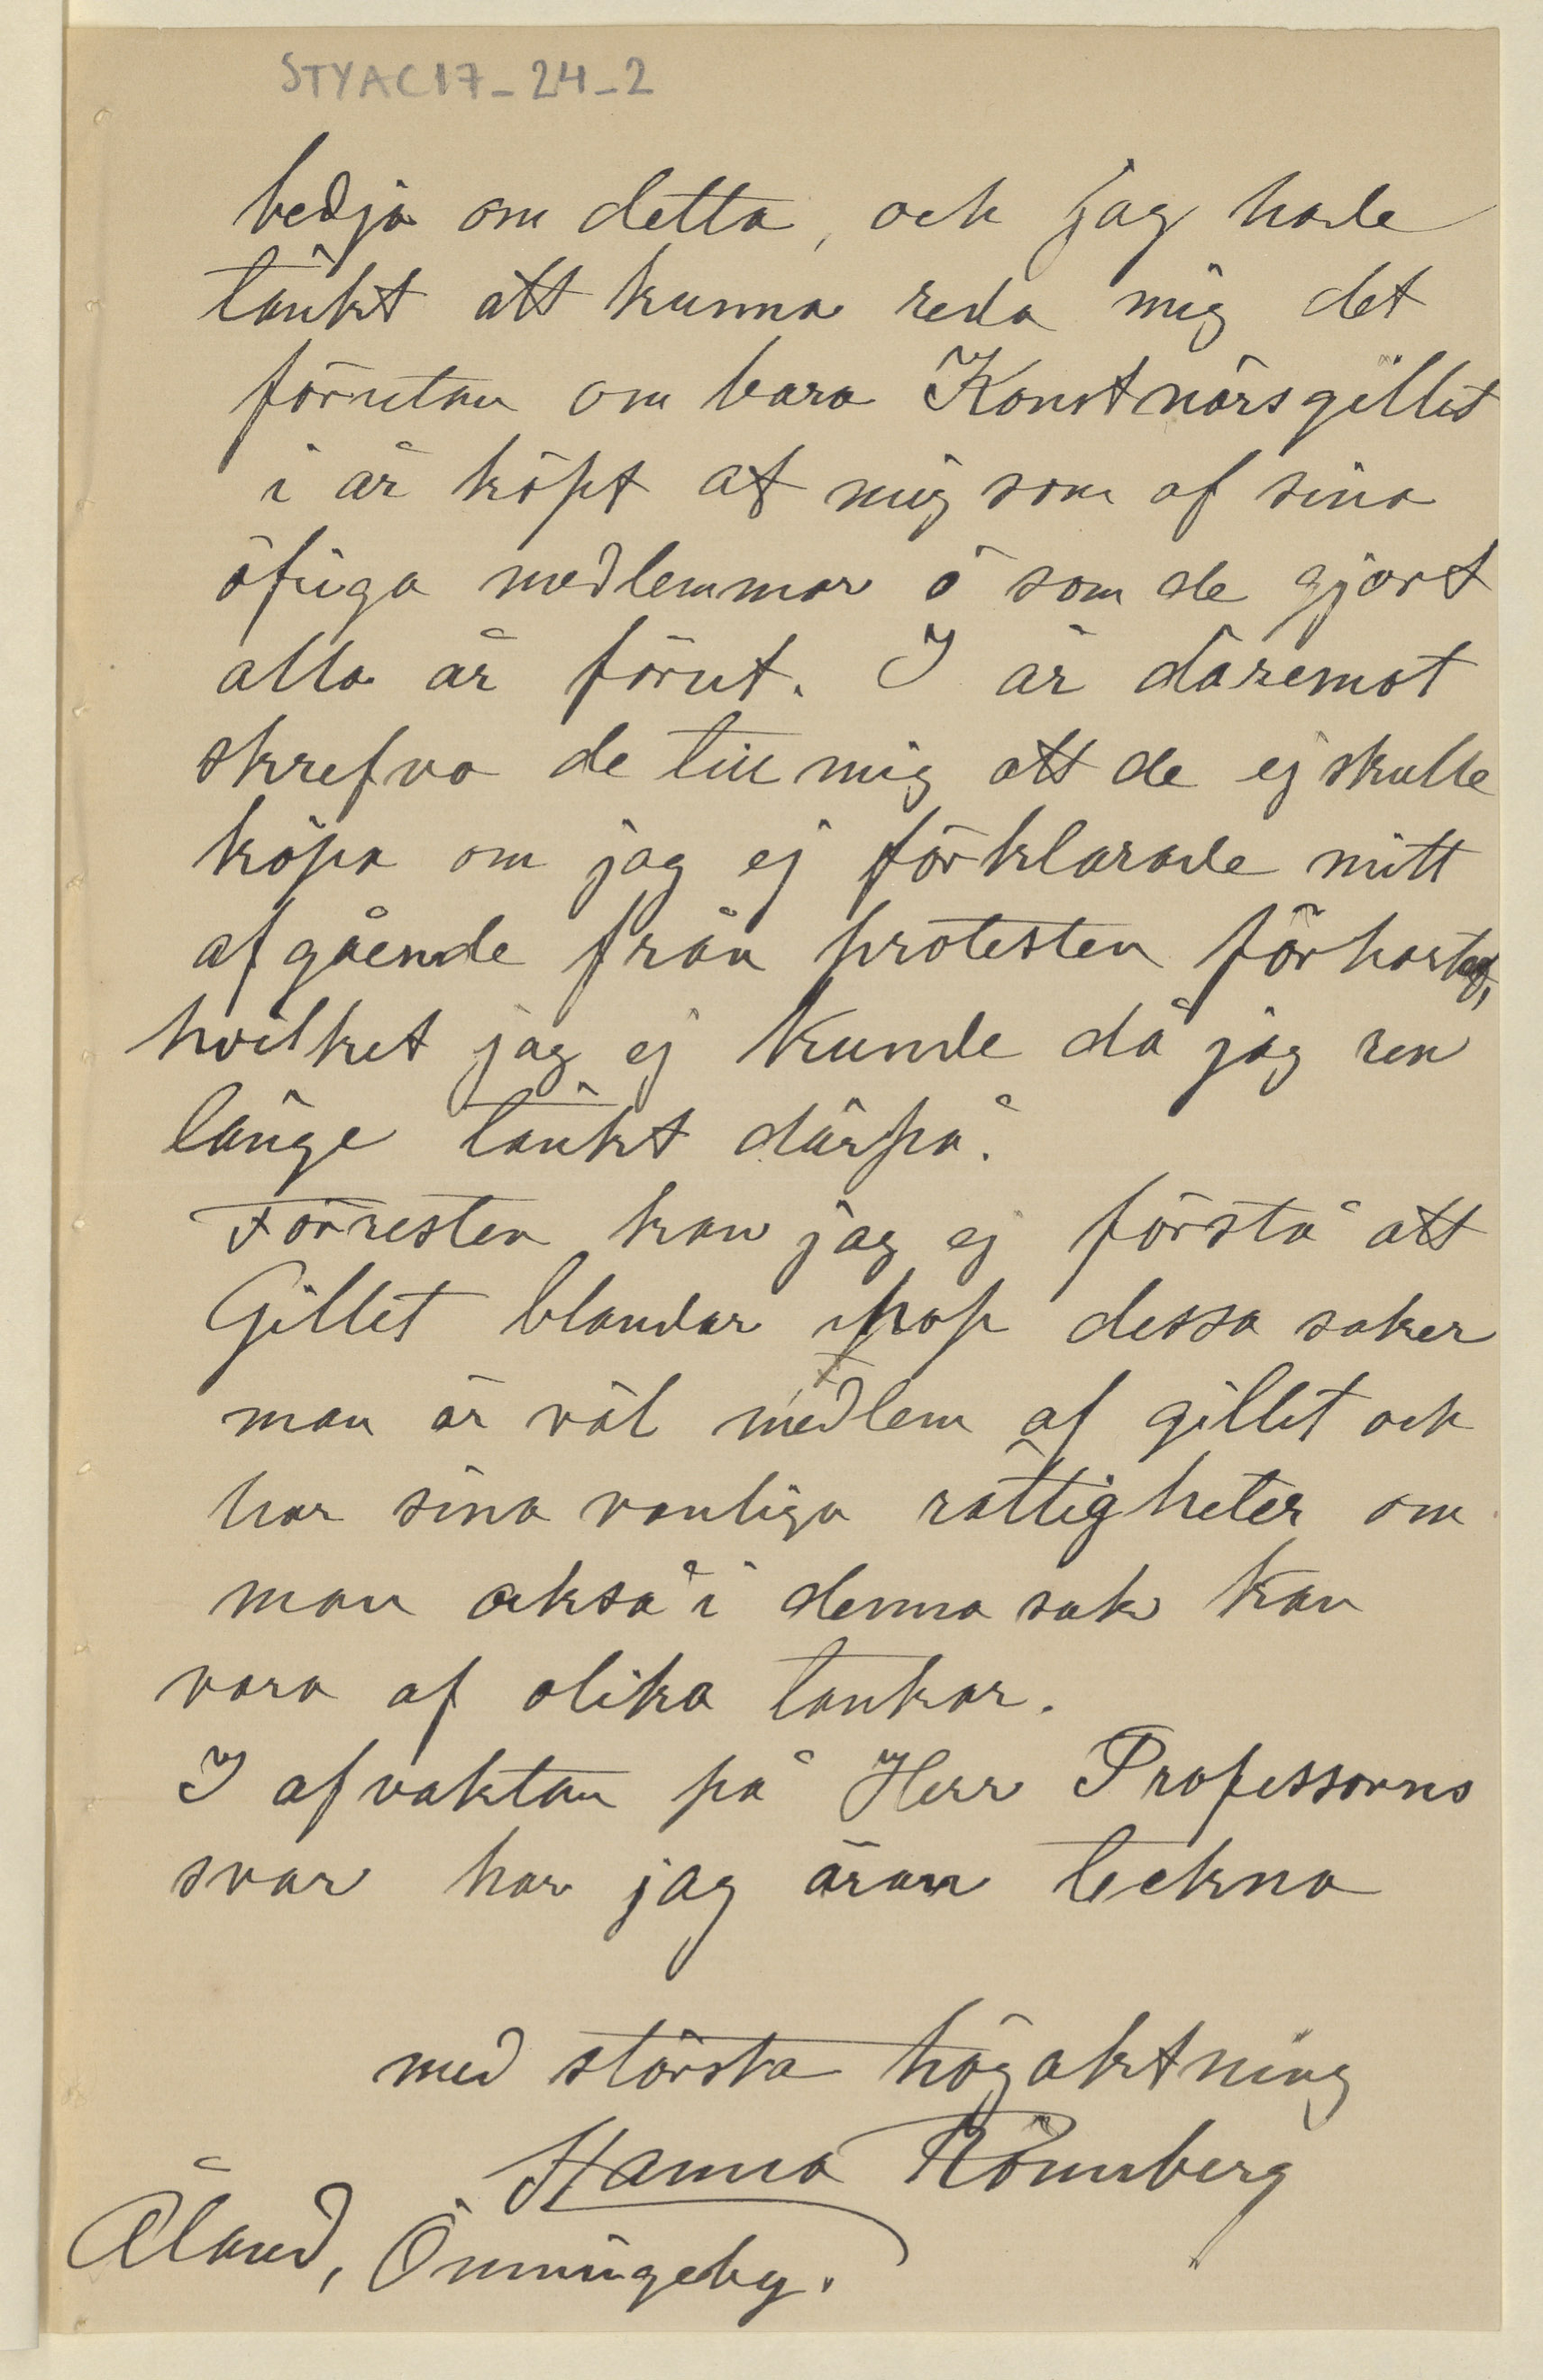 STYAC17_24_2
bedja om detta, och jag hade
tänkt att kunna reda mig det
förutan om bara Konstnärsgillet
i år köpt af mig som af sina
öfriga medlemmar o som de gjort
alla år förut. I år däremot
skrefvo de till mig att de ej skulle
köpa om jag ej förklarade mitt
afgående från protesten förhastadt,
hvilket jag ej kunde då jag ren
länge tänkt därpå.
Förresten kan jag ej förstå att
Gillet blandar ihop dessa saker
man är väl medlem af gillet och
har sina vanliga rättigheter om
man också i denna sak kan
vara af olika tankar.
I afvaktan på Herr Professorns
svar har jag äran teckna
med största högaktning
Hanna Rönnberg
Åland, Önningeby.